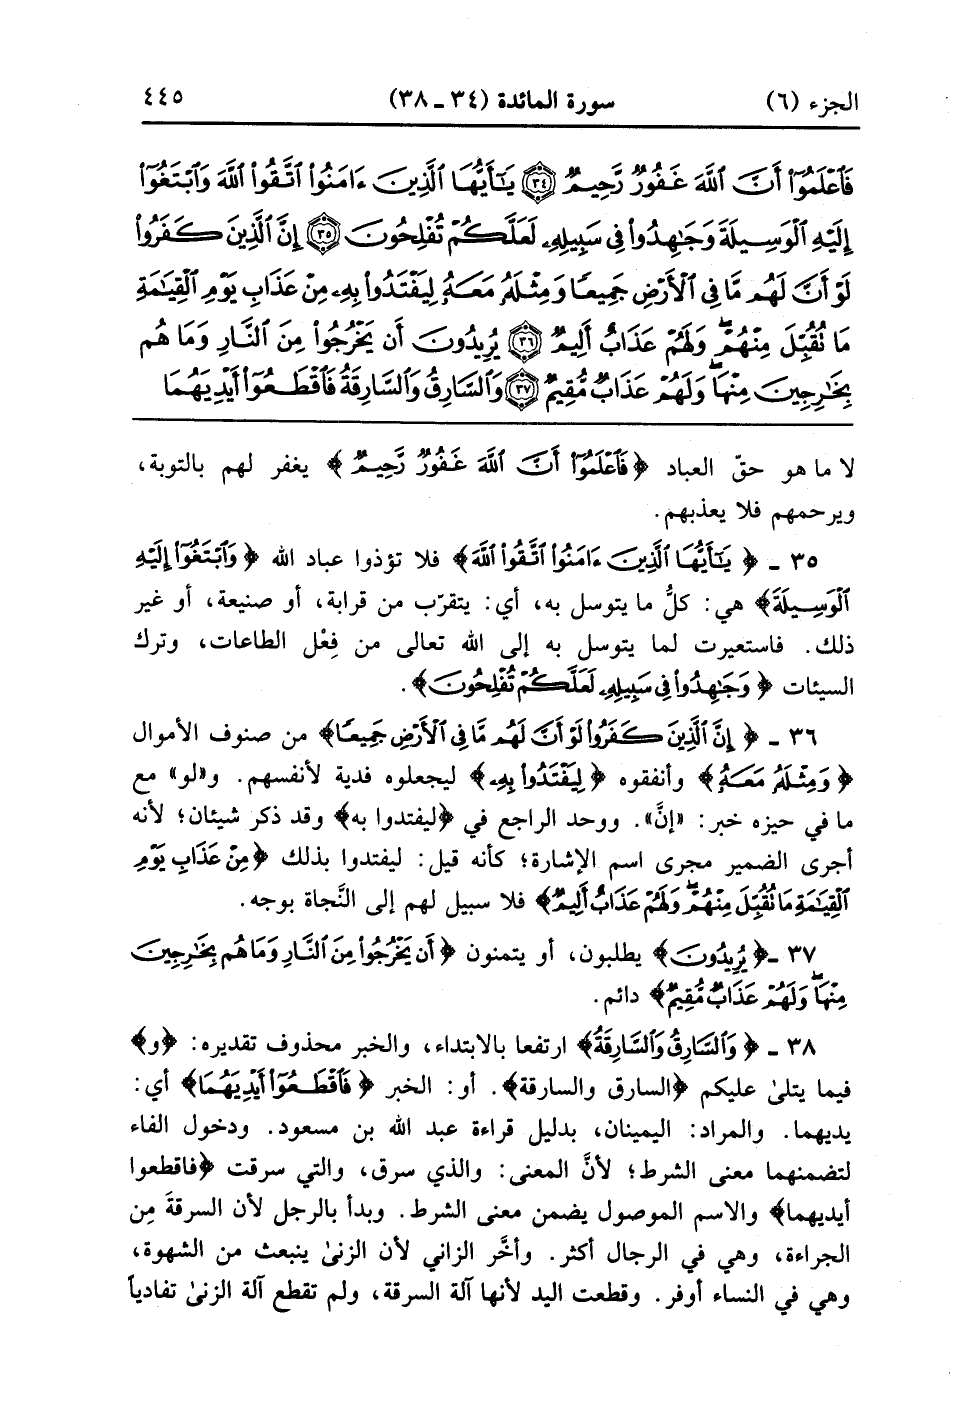 الجزء (٦) سورة المائدة (٣٤ ـ ٣٨) ٤٤٥
فَاَعْلَمُوٓا۟ أَنَّ ٱللَّهَ غَفُورٌ رَّحِيمٌ ﴿٣٤﴾ يَـٰٓأَيُّهَا ٱلَّذِينَ ءَامَنُوا۟ ٱتَّقُوا۟ ٱللَّهَ وَٱبْتَغُوٓا۟
إِلَيْهِ ٱلْوَسِيلَةَ وَجَـٰهِدُوا۟ فِى سَبِيلِهِۦ لَعَلَّكُمْ تُفْلِحُونَ ﴿٣٥﴾ إِنَّ ٱلَّذِينَ كَفَرُوا۟
لَوْ أَنَّ لَهُم مَّا فِى ٱلْأَرْضِ جَمِيعًا وَمِثْلَهُۥ مَعَهُۥ لِيَفْتَدُوا۟ بِهِۦ مِنْ عَذَابِ يَوْمِ ٱلْقِيَـٰمَةِ
مَا تُقُبِّلَ مِنْهُمْ ۖ وَلَهُمْ عَذَابٌ أَلِيمٌ ﴿٣٦﴾ يُرِيدُونَ أَن يَخْرُجُوا۟ مِنَ ٱلنَّارِ وَمَا هُم
بِخَـٰرِجِينَ مِنْهَا ۖ وَلَهُمْ عَذَابٌ مُّقِيمٌ ﴿٣٧﴾ وَٱلسَّارِقُ وَٱلسَّارِقَةُ فَٱقْطَعُوٓا۟ أَيْدِيَهُمَا
لا ما هو حقّ العباد ﴿فَٱعْلَمُوٓا۟ أَنَّ ٱللَّهَ غَفُورٌ رَّحِيمٌ﴾ يغفر لهم بالتوبة،
ويرحمهم فلا يعذبهم.
٣٥ ـ ﴿يَـٰٓأَيُّهَا ٱلَّذِينَ ءَامَنُوا۟ ٱتَّقُوا۟ ٱللَّهَ﴾ فلا تؤذوا عباد الله ﴿وَٱبْتَغُوٓا۟ إِلَيْهِ
ٱلْوَسِيلَةَ﴾ هي: كلُّ ما يتوسل به، أي: يتقرّب من قرابة، أو صنيعة، أو غير
ذلك. فاستعيرت لما يتوسل به إلى الله تعالى من فِعْل الطاعات، وترك
السيئات ﴿وَجَـٰهِدُوا۟ فِى سَبِيلِهِۦ لَعَلَّكُمْ تُفْلِحُونَ﴾.
٣٦ ـ ﴿إِنَّ ٱلَّذِينَ كَفَرُوا۟ لَوْ أَنَّ لَهُم مَّا فِى ٱلْأَرْضِ جَمِيعًا﴾ من صنوف الأموال
﴿وَمِثْلَهُۥ مَعَهُۥ﴾ وأنفقوه ﴿لِيَفْتَدُوا۟ بِهِۦ﴾ ليجعلوه فدية لأنفسهم. و«لو» مع
ما في حيزه خبر: «إنَّ». ووحد الراجع في ﴿ليفتدوا به﴾ وقد ذكر شيئان؛ لأنه
أجرى الضمير مجرى اسم الإشارة؛ كأنه قيل: ليفتدوا بذلك ﴿مِنْ عَذَابِ يَوْمِ
ٱلْقِيَـٰمَةِ مَا تُقُبِّلَ مِنْهُمْ ۖ وَلَهُمْ عَذَابٌ أَلِيمٌ﴾ فلا سبيل لهم إلى النَّجاة بوجه.
٣٧ ـ ﴿يُرِيدُونَ﴾ يطلبون، أو يتمنون ﴿أَن يَخْرُجُوا۟ مِنَ ٱلنَّارِ وَمَا هُم بِخَـٰرِجِينَ
مِنْهَا ۖ وَلَهُمْ عَذَابٌ مُّقِيمٌ﴾ دائم.
٣٨ ـ ﴿وَٱلسَّارِقُ وَٱلسَّارِقَةُ﴾ ارتفعا بالابتداء، والخبر محذوف تقديره: ﴿و﴾
فيما يتلىٰ عليكم ﴿السارق والسارقة﴾. أو: الخبر ﴿فَٱقْطَعُوٓا۟ أَيْدِيَهُمَا﴾ أي:
يديهما. والمراد: اليمينان، بدليل قراءة عبد الله بن مسعود. ودخول الفاء
لتضمنهما معنى الشرط؛ لأنَّ المعنى: والذي سرق، والتي سرقت ﴿فاقطعوا
أيديهما﴾ والاسم الموصول يضمن معنى الشرط. وبدأ بالرجل لأن السرقةَ مِن
الجراءة، وهي في الرجال أكثر. وأخَّر الزاني لأن الزنىٰ ينبعث من الشهوة،
وهي في النساء أوفر. وقطعت اليد لأنها آلة السرقة، ولم تقطع آلة الزنىٰ تفادياً